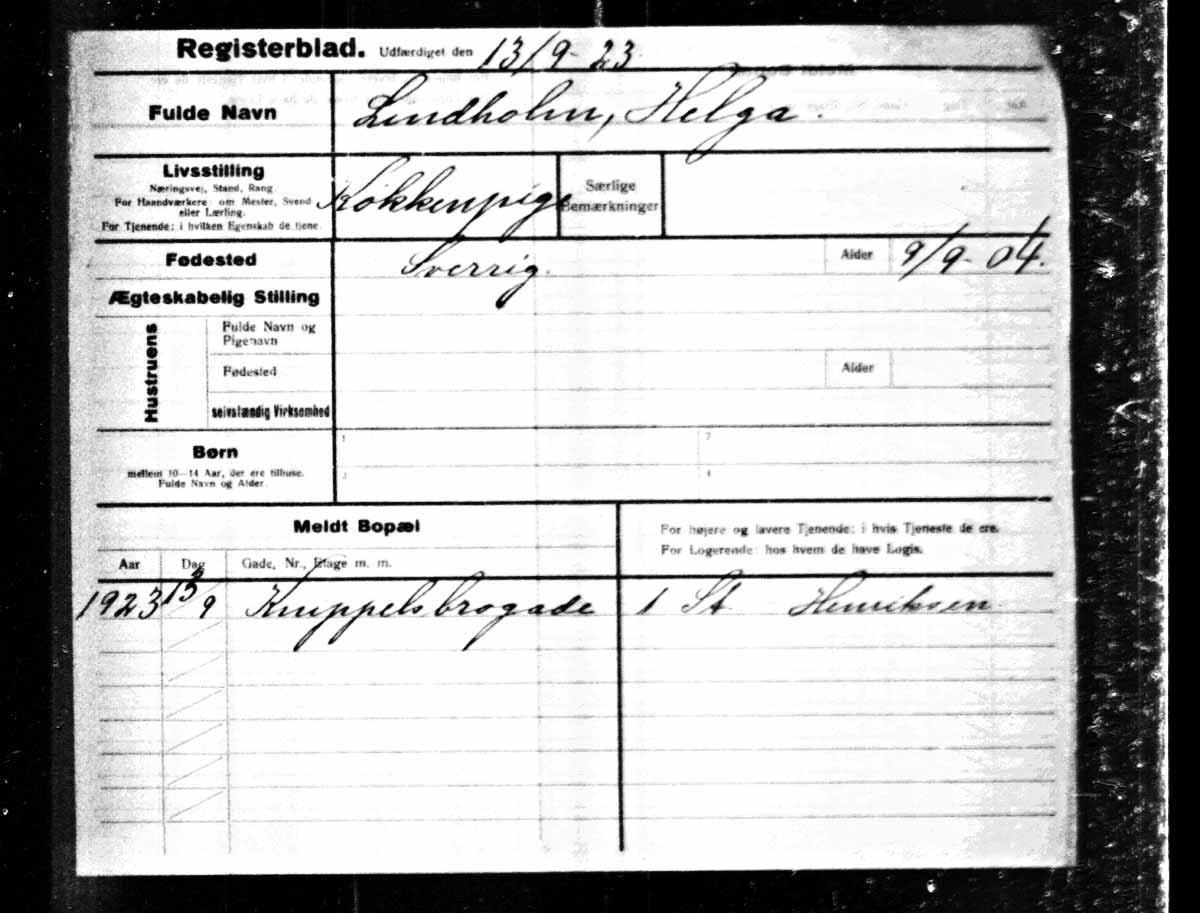 Registerblad. Udfærdiget den 13/9-23.
Fulde Navn Lindholm, Helga.
Livsstilling
Næringsvej, Stand, Rang.
For Haandværkere: om Mester, Svend
eller Lærling.
For Tjenende: i hvilken Egenskab de tjene.
Kökkenpige
Særlige
Bemærkninger
Fødested Sverrig. Alder 9/9-04.
Ægteskabelig Stilling
Hustruens
Fulde Navn og
Pigenavn
Fødested Alder
selvstændig Virksomhed
Børn
mellem 10—14 Aar, der ere tilhuse.
Fulde Navn og Alder.
1 2
3 4
Meldt Bopæl
For højere og lavere Tjenende: i hvis Tjeneste de ere.
For Logerende: hos hvem de have Logis.
Aar Dag Gade, Nr., Etage m. m.
1923 13/9 Knippelsbrogade 1 St Henriksen